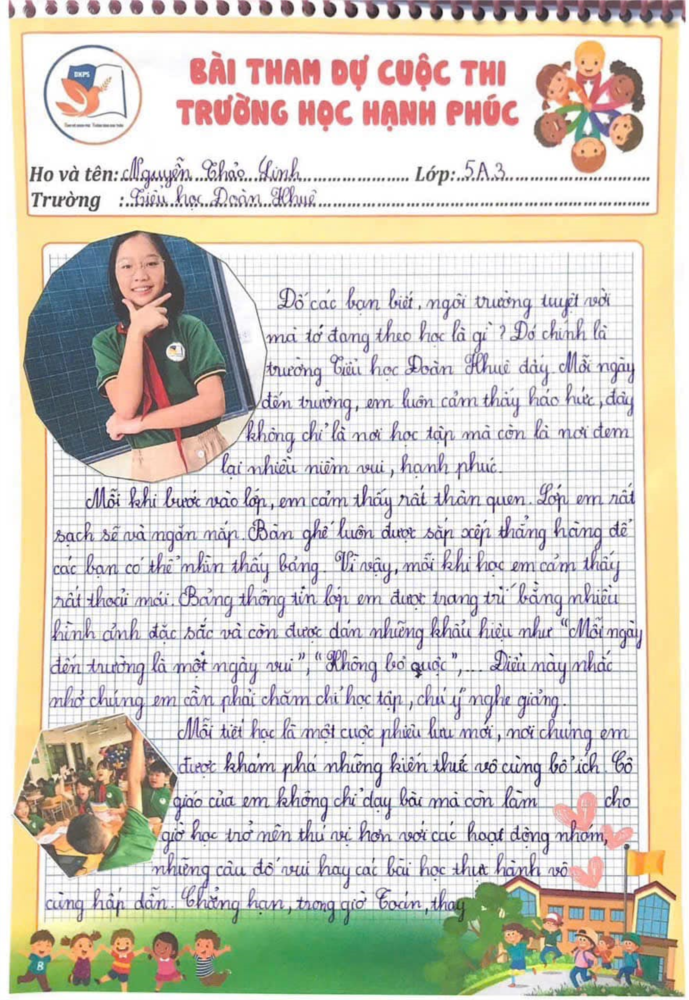 DKPS
BÀI THAM DỰ CUỘC THI
TRƯỜNG HỌC HẠNH PHÚC
Họ và tên: Nguyễn Thảo Linh Lớp: 5A3
Trường : Tiểu học Đoàn Khuê
Đố các bạn biết, ngôi trường tuyệt vời
mà tớ đang theo học là gì ? Đó chính là
trường Tiểu học Đoàn Khuê đây. Mỗi ngày
đến trường, em luôn cảm thấy háo hức, đây
không chỉ là nơi học tập mà còn là nơi đem
lại nhiều niềm vui, hạnh phúc.
Mỗi khi bước vào lớp, em cảm thấy rất thân quen. Lớp em rất
sạch sẽ và ngăn nắp. Bàn ghế luôn được sắp xếp thẳng hàng để
các bạn có thể nhìn thấy bảng. Vì vậy, mỗi khi học em cảm thấy
rất thoải mái. Bảng thông tin lớp em được trang trí bằng nhiều
hình ảnh đặc sắc và còn được dán những khẩu hiệu như "Mỗi ngày
đến trường là một ngày vui", "Không bỏ cuộc",... Điều này nhắc
nhở chúng em cần phải chăm chỉ học tập, chú ý nghe giảng.
Mỗi tiết học là một cuộc phiêu lưu mới, nơi chúng em
được khám phá những kiến thức vô cùng bổ ích. Cô
giáo của em không chỉ dạy bài mà còn làm cho
giờ học trở nên thú vị hơn với các hoạt động nhóm,
những câu đố vui hay các bài học thực hành vô
cùng hấp dẫn. Chẳng hạn, trong giờ Toán, thay
8